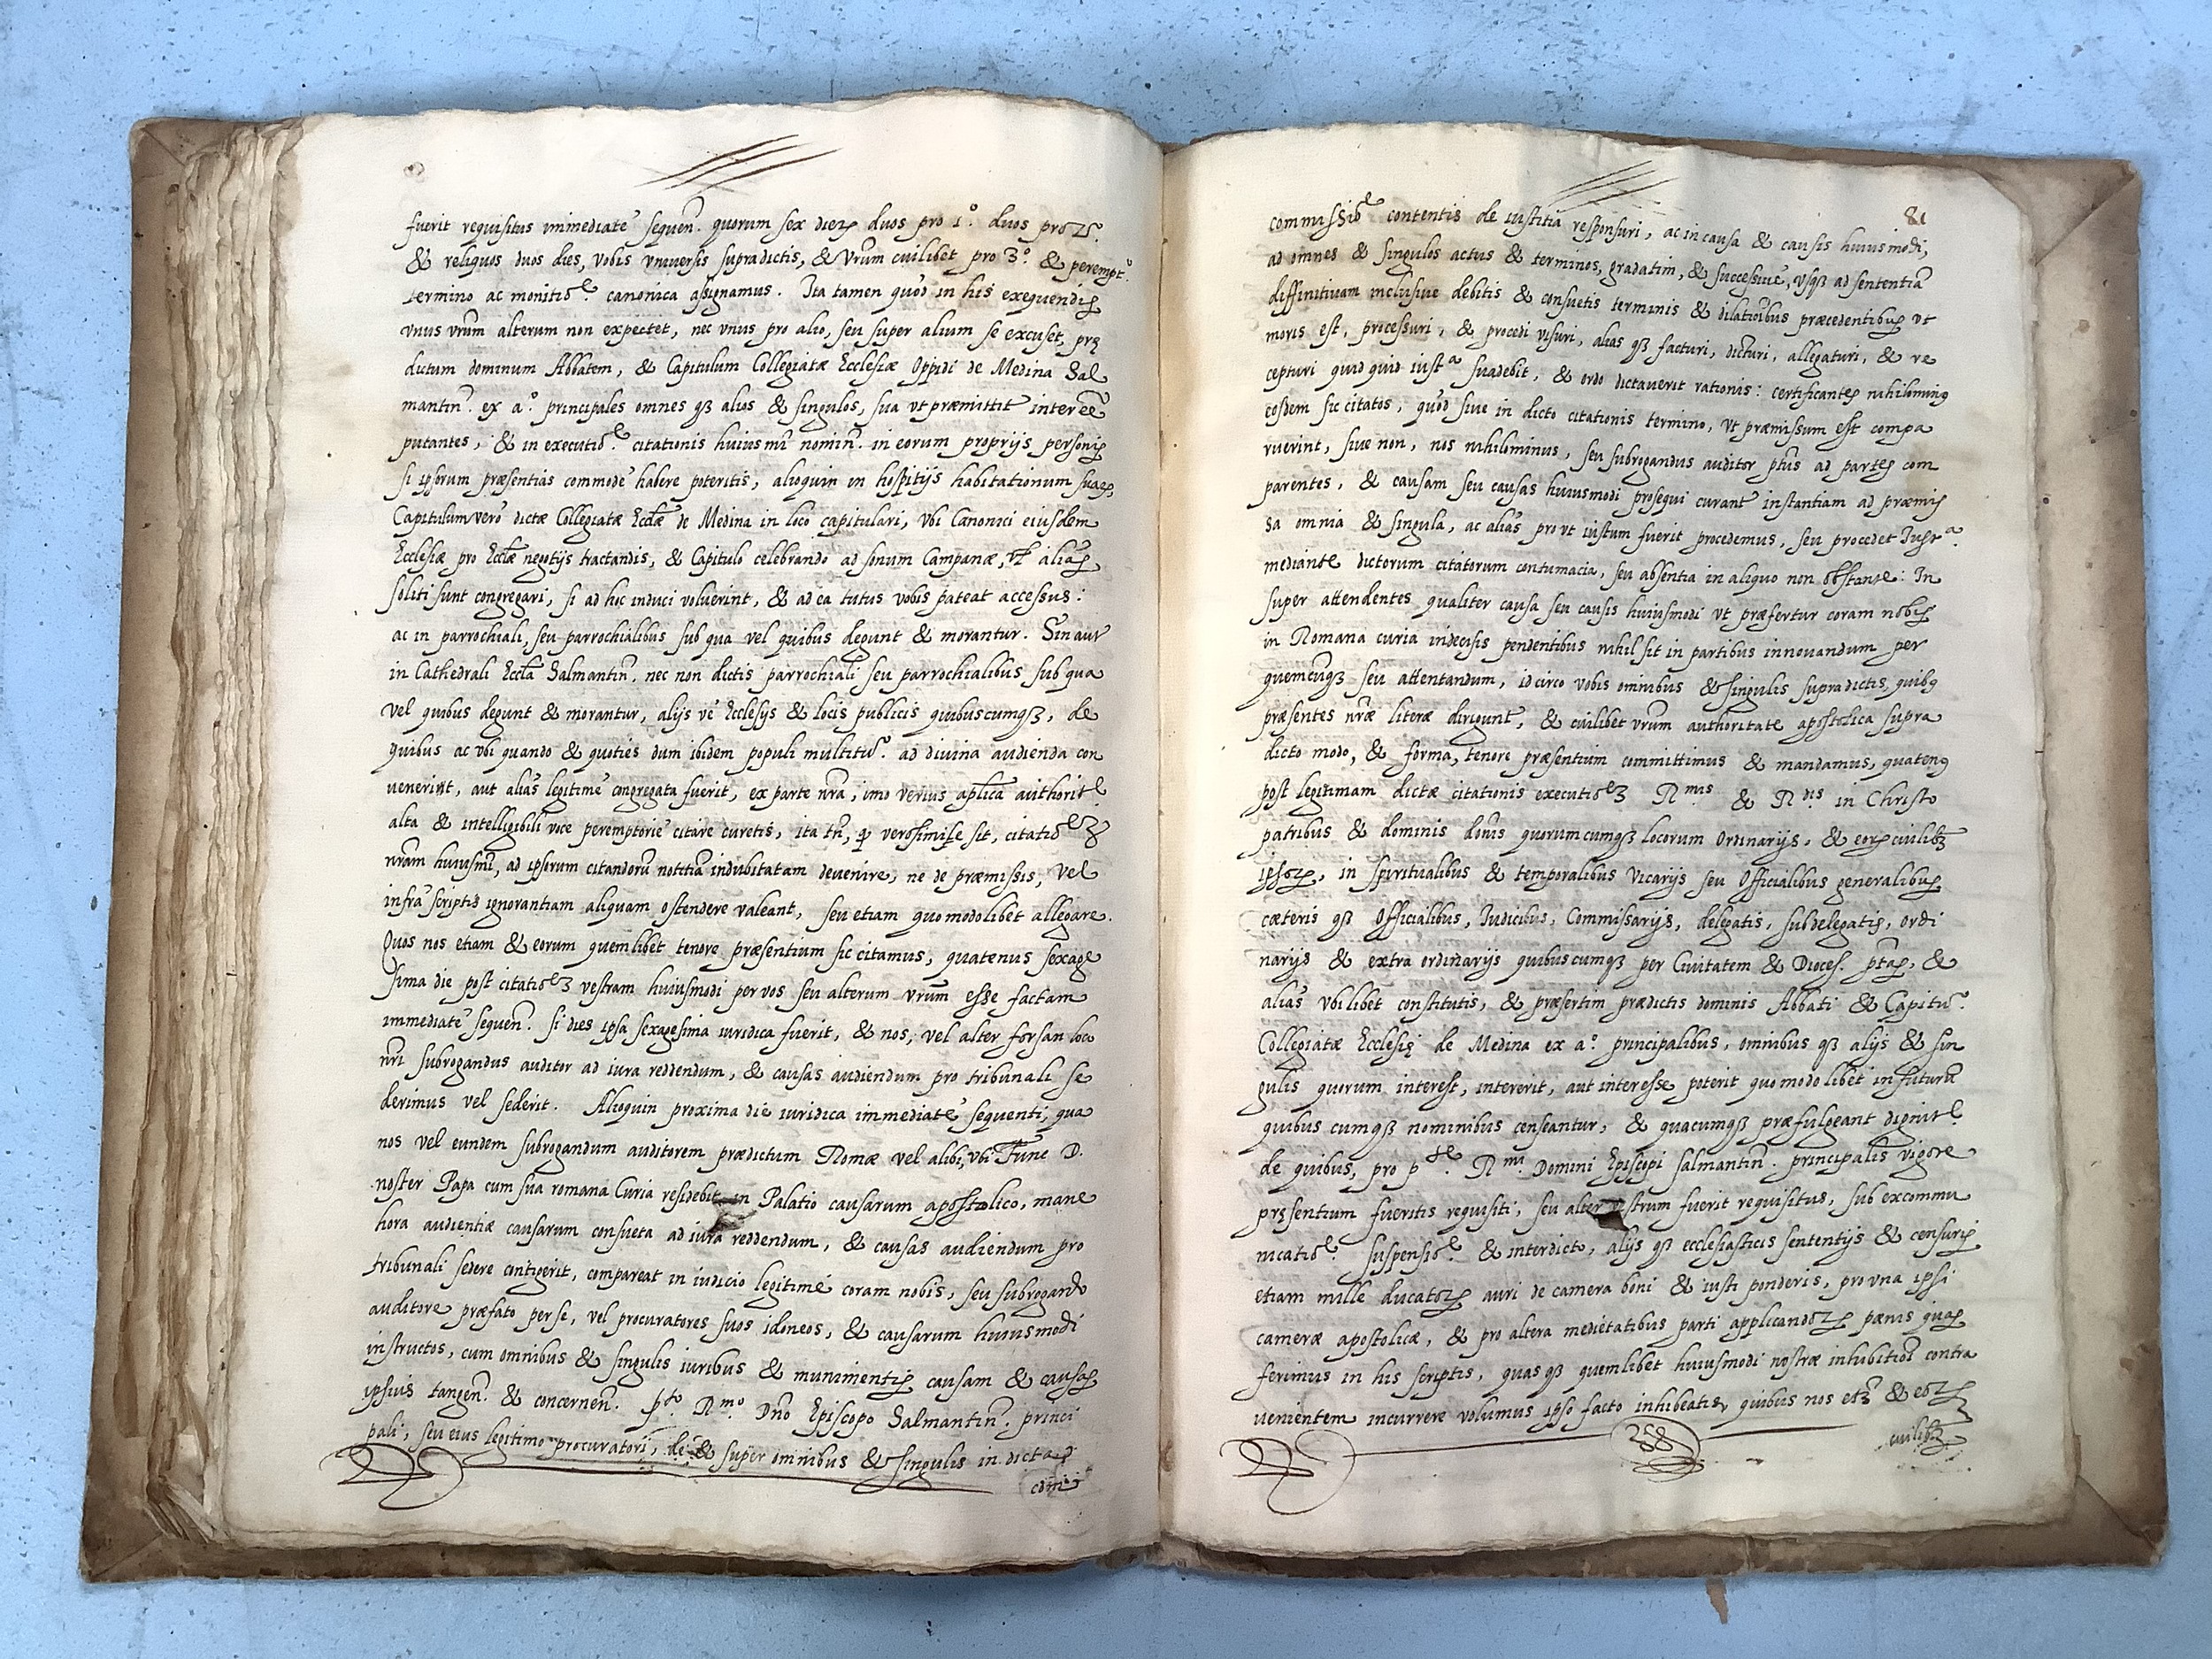 fuerit requisitus immediatè sequen̄. quorum sex dierꝝ duos pro 1.º duos pro 2.º
& reliquos duos dies, vobis vniuersis supradictis, & vr̄um cuilibet pro 3.º & perempt.º
termino ac monitiõe canonica assignamus. Ita tamen quòd in his exequendis
vnus vr̄um alterum non expectet, nec vnus pro alio, seu super alium se excuset, prę
dictum dominum Abbatem, & Capitulum Collegiatæ Ecclesiæ Oppidi de Medina Sal
mantin̄. ex a.º principales omnes qꝫ alios & singulos, sua vt præmittit̄ interēē
putantes, & in executiõe citationis huiusmī nomin̄. in eorum proprijs personis
si ipsorum præsentias commodè habere poteritis, alioquin in hospitijs habitationum suarꝝ,
Capitulum verò dictæ Collegiatæ Eccl̄æ de Medina in loco capitulari, vbi Canonici eiusdem
Ecclesiæ pro Eccl̄æ negotijs tractandis, & Capitulo celebrando ad sonum Campanæ, vł aliàs
soliti sunt congregari, si ad hoc induci voluerint, & ad ea tutus vobis pateat accessus:
ac in parrochiali, seu parrochialibus sub qua vel quibus degunt & morantur. Sin aut̄
in Cathedrali Eccl̄a Salmantin̄. nec non dictis parrochiali seu parrochialibus sub qua
vel quibus degunt & morantur, alijs vè Ecclesijs & locis publicis quibuscumqꝫ, de
quibus ac vbi quando & quoties dum ibidem populi multitu.º ad diuina audienda con
uenerint, aut aliàs legitimè congregata fuerit, ex parte nr̄a, imo verius aplicā authorite
alta & intelligibili voce peremptoriè citare curetis, ita tñ, ꝙ verosimile sit, citatiõeꝫ
nr̄am huiusmī, ad ipsorum citandorū notitiā indubitatam deuenire, ne de præmissis, vel
infra scriptis ignorantiam aliquam ostendere valeant, seu etiam quomodolibet allegare.
Quos nos etiam & eorum quemlibet tenore præsentium sic citamus, quatenus sexage
sima die post citatiõeꝫ vestram huiusmodi per vos seu alterum vr̄um esse factam
immediatè sequen̄. si dies ipsa sexagesima iuridica fuerit, & nos, vel alter forsan loco
nr̄i subrogandus auditor ad iura reddendum, & causas audiendum pro tribunali se
derimus vel sederit. Alioquin proxima die iuridica immediatè sequenti, qua
nos vel eundem subrogandum auditorem prædictum Romæ vel alibi, vbi tunc D.
noster Papa cum sua romana Curia residebit in Palatio causarum apostolico, mane
hora audientiæ causarum consueta ad iura reddendum, & causas audiendum pro
tribunali sedere contigerit, compareat in iudicio legitimè coram nobis, seu subrogando
auditore præfato per se, vel procuratores suos idoneos, & causarum huiusmodi
instructos, cum omnibus & singulis iuribus & munimentis causam & causas
ipsius tangen̄. & concernen̄. pto. Rmo. Dn̄o Episcopo Salmantin̄. princi
pali, seu eius legitimo procuratori, de & super omnibus & singulis in dicta
com̄
81
commissiõe contentis de iustitia responsuri, ac in causa & causis huiusmodi,
ad omnes & singulos actus & terminos, gradatim, & successiuè, vsqꝫ ad sententiā
diffinitiuam inclusiue debitis & consuetis terminis & dilatiõibus præcedentibus vt
moris est, processuri, & procedi visuri, alias qꝫ facturi, dicturi, allegaturi, & re
cepturi quid quid iusta suadebit, & ordo dictauerit rationis: certificantes nihilominꝰ
eosdem sic citatos, quòd siue in dicto citationis termino, vt præmissum est compa
ruerint, siue non, nos nihilominus, seu subrogandus auditor ptūs ad partes com
parentes, & causam seu causas huiusmodi prosequi curant̄ instantiam ad præmis
sa omnia & singula, ac aliàs pro vt iustum fuerit procedemus, seu procedet Iusta.
mediante dictorum citatorum contumacia, seu absentia in aliquo non obstante: In
super attendentes qualiter causa seu causis huiusmodi vt præfertur coram nobis
in Romana curia indecisis pendentibus nihil sit in partibus innouandum per
quemcumqꝫ seu attentandum, idcirco vobis omnibus & singulis supradictis, quibꝰ
præsentes nr̄æ literæ dirigunt̄, & cuilibet vr̄um authoritate apostolica supra
dicto modo, & forma, tenore præsentium committimus & mandamus, quatenꝰ
post legitimam dictæ citationis executiõeꝫ Rmis & Rdis in Christo
patribus & dominis dōnis quorumcumqꝫ locorum Ordinarijs, & eorꝝ cuilibꝫ
ipsorꝝ, in spiritualibus & temporalibus Vicarijs seu Officialibus generalibus
cæteris qꝫ Officialibus, Iudicibus, Commissarijs, delegatis, subdelegatis, ordi
narijs & extra ordinarijs quibuscumqꝫ per Ciuitatem & Dioces. ptās, &
aliàs vbilibet constitutis, & præsertim prædictis dominis Abbati & Capitu.º
Collegiatæ Ecclesię de Medina ex a.º principalibus, omnibus qꝫ alijs & sin
gulis quorum interest, intererit, aut interesse poterit quomodolibet in futurū
quibus cumqꝫ nominibus censeantur, & quacumqꝫ præfulgeant dignite
de quibus, pro pte. Rmi Domini Episcopi Salmantin̄. principalis vigore
pręsentium fueritis requisiti, seu alter vestrum fuerit requisitus, sub excommu
nicatiõe. suspensiõe & interdicto, alijs qꝫ ecclesiasticis sententijs & censuris
etiam mille ducatorꝝ auri de camera boni & iusti ponderis, pro vna ipsi
cameræ apostolicæ, & pro altera medietatibus parti applicandorꝝ pœnis quas
ferimus in his scriptis, quas qꝫ quemlibet huiusmodi nostræ inhibitiõi contra
uenientem incurrere volumus ipso facto inhibeatis, quibus nos etꝫ & eorꝝ
cuilibꝫ